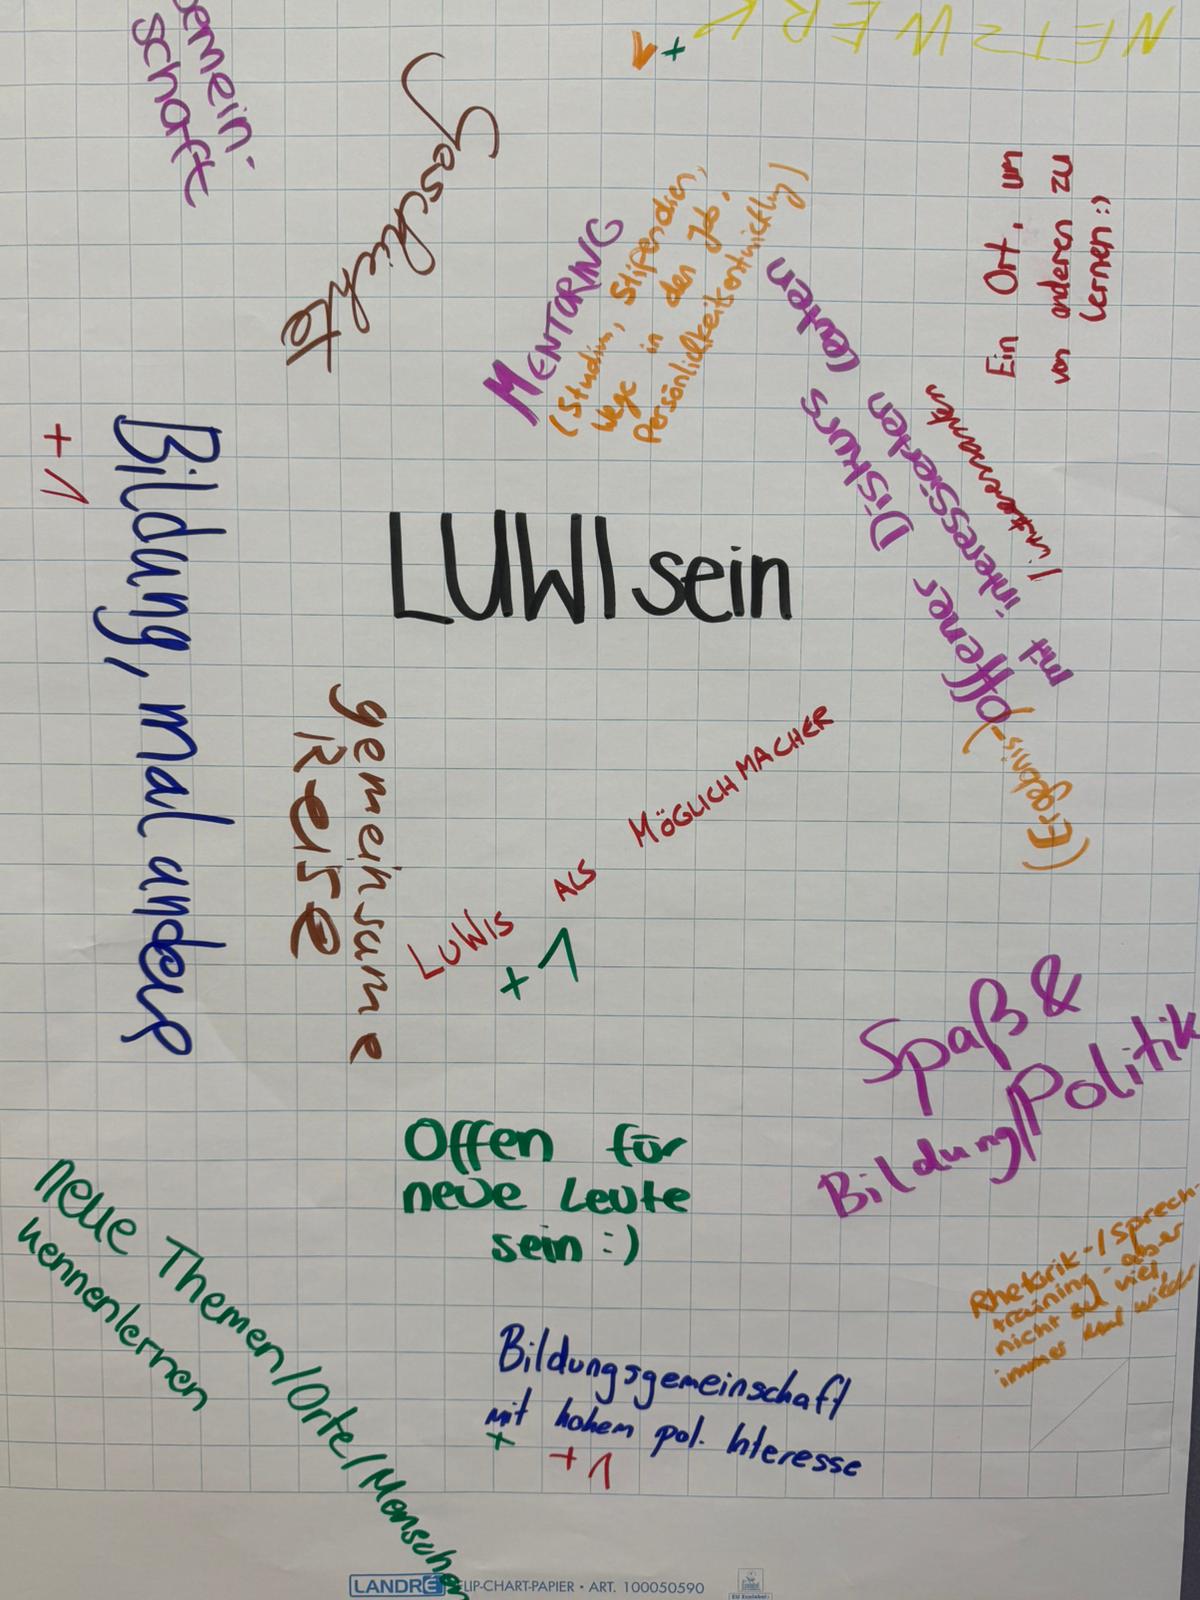 Gemein-
schaft
NETZWERK
+1
Geschichte
MENTORING
(Studium, Stipendien,
Wege in den Job,
Persönlichkeitsentwicklung)
Ein Ort, um
von anderen zu
lernen :)
(Ergebnis-)offener Diskurs
mit interessierten Leuten
/
+1
Bildung, mal anders
LUWI sein
gemeinsame
Reise
LUWIS ALS MÖGLICHMACHER
+1
Spaß &
Bildung/Politik
Offen für
neue Leute
sein :)
Neue Themen/Orte/Menschen
kennenlernen
Rhetorik-/Sprech-
training - aber
nicht zu viel,
immer mal wieder
Bildungsgemeinschaft
mit hohem pol. Interesse
+
+1
LANDRÉ FLIP-CHART-PAPIER • ART. 100050590
EU Ecolabel